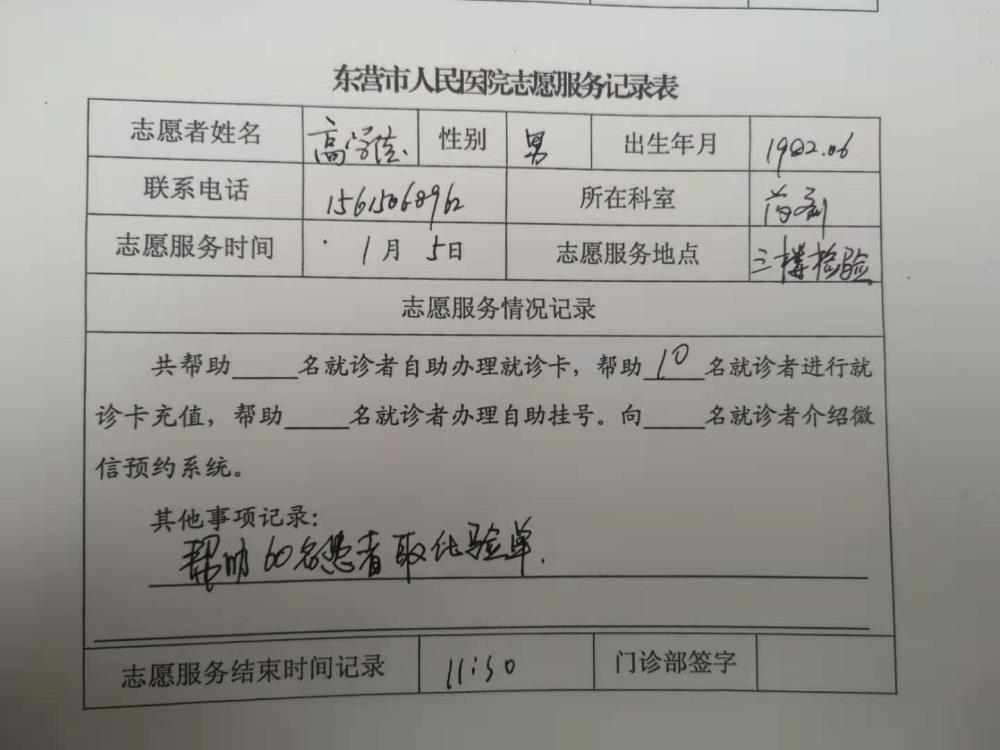 东营市人民医院志愿服务记录表
志愿者姓名 高学信 性别 男 出生年月 1982.06
联系电话 15615068962 所在科室
志愿服务时间 1月 5日 志愿服务地点 三楼检验
志愿服务情况记录
共帮助_____名就诊者自助办理就诊卡，帮助 10 名就诊者进行就
诊卡充值，帮助_____名就诊者办理自助挂号。向_____名就诊者介绍微
信预约系统。
其他事项记录：
帮助60名患者取化验单.
志愿服务结束时间记录 11:30 门诊部签字